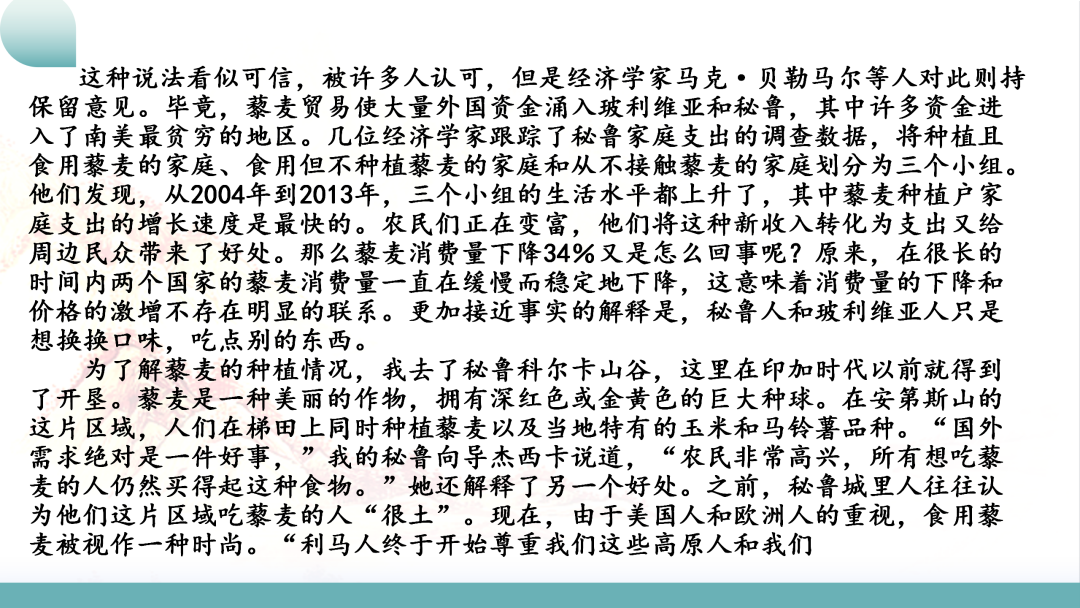 这种说法看似可信，被许多人认可，但是经济学家马克·贝勒马尔等人对此则持
保留意见。毕竟，藜麦贸易使大量外国资金涌入玻利维亚和秘鲁，其中许多资金进
入了南美最贫穷的地区。几位经济学家跟踪了秘鲁家庭支出的调查数据，将种植且
食用藜麦的家庭、食用但不种植藜麦的家庭和从不接触藜麦的家庭划分为三个小组。
他们发现，从2004年到2013年，三个小组的生活水平都上升了，其中藜麦种植户家
庭支出的增长速度是最快的。农民们正在变富，他们将这种新收入转化为支出又给
周边民众带来了好处。那么藜麦消费量下降34%又是怎么回事呢？原来，在很长的
时间内两个国家的藜麦消费量一直在缓慢而稳定地下降，这意味着消费量的下降和
价格的激增不存在明显的联系。更加接近事实的解释是，秘鲁人和玻利维亚人只是
想换换口味，吃点别的东西。
为了解藜麦的种植情况，我去了秘鲁科尔卡山谷，这里在印加时代以前就得到
了开垦。藜麦是一种美丽的作物，拥有深红色或金黄色的巨大种球。在安第斯山的
这片区域，人们在梯田上同时种植藜麦以及当地特有的玉米和马铃薯品种。“国外
需求绝对是一件好事，”我的秘鲁向导杰西卡说道，“农民非常高兴，所有想吃藜
麦的人仍然买得起这种食物。”她还解释了另一个好处。之前，秘鲁城里人往往认
为他们这片区域吃藜麦的人“很土”。现在，由于美国人和欧洲人的重视，食用藜
麦被视作一种时尚。“利马人终于开始尊重我们这些高原人和我们